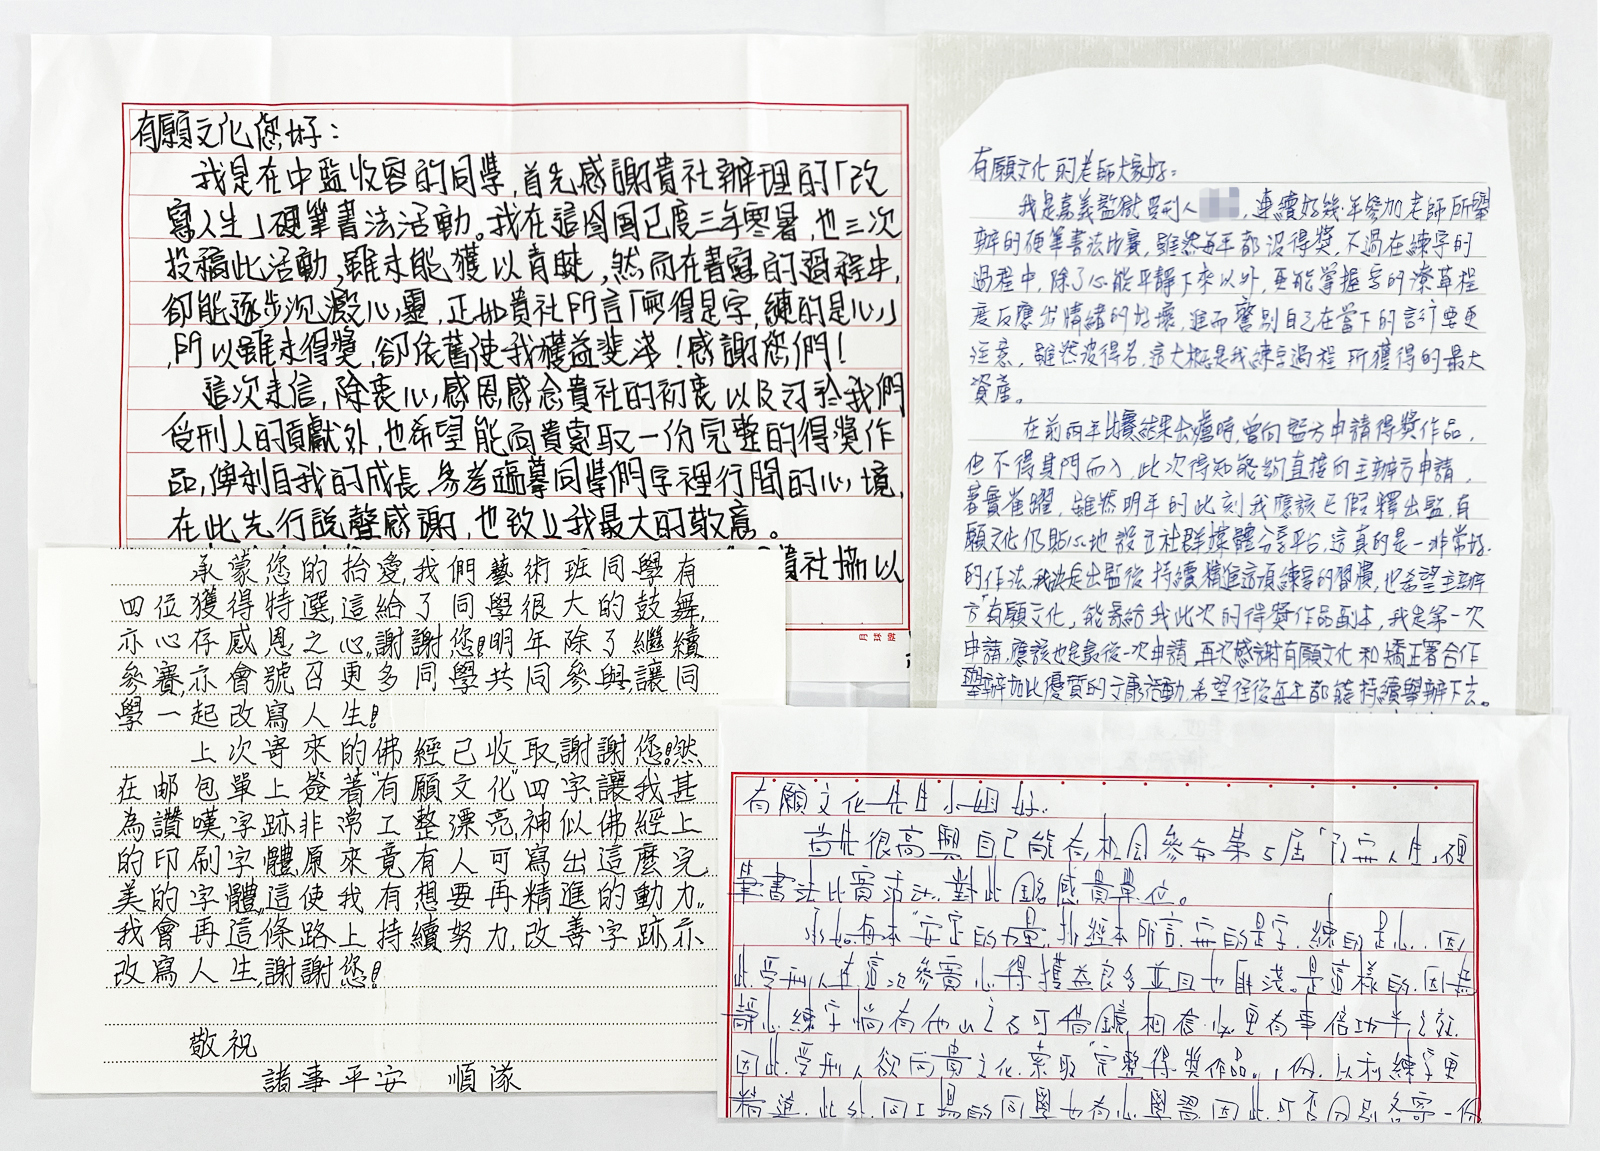 有願文化您好：
我是在中監收容的同學,首先感謝貴社辦理的「改
寫人生」硬筆書法活動。我在這囹圄已度三年寒暑,也三次
投稿此活動,雖未能獲以青睞,然而在書寫的過程中,
卻能逐步沉澱心靈,正如貴社所言「寫得是字,練的是心」
,所以雖未得獎,卻依舊使我獲益斐淺!感謝您們!
這次來信,除衷心感恩感念貴社的初衷以及對於我們
受刑人的貢獻外,也希望能向貴索取一份完整的得獎作
品,俾利自我的成長,參考臨摹同學們字裡行間的心境,
在此先行說聲感謝,也致上我最大的敬意。
貴社協以
有願文化的老師大家好:
我是嘉義監獄受刑人,連續好幾年參加老師所舉
辦的硬筆書法比賽,雖然每年都沒得獎,不過在練字的
過程中,除了心能平靜下來以外,更能掌握字的潦草程
度反應出情緒的好壞,進而警別自己在當下的言行要更
注意,雖然沒得名,這大概是我練字過程所獲得的最大
資產。
在前兩年比賽結果出爐時,曾向監方申請得獎作品,
但不得其門而入,此次得知能夠直接向主辦方申請,
著實雀躍,雖然明年的此刻我應該已假釋出監,有
願文化仍貼心地設立社群媒體分享平台,這真的是一非常好
的作法,我決定出監後持續精進這項練字的習慣,也希望主辦
方"有願文化"能寄給我此次的得獎作品副本,我是第一次
申請,應該也是最後一次申請,再次感謝有願文化和矯正署合作
舉辦如此優質的文康活動,希望往後每年都能持續舉辦下去。
承蒙您的抬愛,我們藝術班同學有
四位獲得特選,這給了同學很大的鼓舞,
亦心存感恩之心,謝謝您!明年除了繼續
參賽,亦會號召更多同學共同參與,讓同
學一起改寫人生!
上次寄來的佛經已收取,謝謝您!然
在邮包單上簽著"有願文化"四字讓我甚
為讚嘆,字跡非常工整漂亮,神似佛經上
的印刷字體,原來竟有人可寫出這麼完
美的字體,這使我有想要再精進的動力。
我會再這條路上持續努力,改善字跡亦
改寫人生,謝謝您!
敬祝
諸事平安 順隊
有願文化先生小姐好:
首先很高興自己能有機會參加第5屆「改寫人生」硬
筆書法比賽活動,對此由感貴單位。
永如每本"安定的力量"抄經本所言,寫的是字,練的是心,因
此受刑人在這次參賽心得獲益良多並且也匪淺。是這樣的,因為
靜心練字倘有他山之石可借鏡相信必更有事倍功半之效
因此受刑人欲向貴文化索取"完整得獎作品"1份,以利練字更
精進,此外,同工場的同學也有心學習,因此可否分別各寄一份